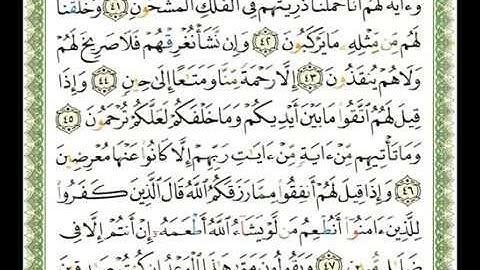 وَءَايَةٌ لَّهُمْ أَنَّا حَمَلْنَا ذُرِّيَّتَهُمْ فِي ٱلْفُلْكِ ٱلْمَشْحُونِ ٤١ وَخَلَقْنَا
لَهُم مِّن مِّثْلِهِۦ مَا يَرْكَبُونَ ٤٢ وَإِن نَّشَأْ نُغْرِقْهُمْ فَلَا صَرِيخَ لَهُمْ
وَلَا هُمْ يُنقَذُونَ ٤٣ إِلَّا رَحْمَةً مِّنَّا وَمَتَٰعًا إِلَىٰ حِينٍ ٤٤ وَإِذَا
قِيلَ لَهُمُ ٱتَّقُوا۟ مَا بَيْنَ أَيْدِيكُمْ وَمَا خَلْفَكُمْ لَعَلَّكُمْ تُرْحَمُونَ ٤٥
وَمَا تَأْتِيهِم مِّنْ ءَايَةٍ مِّنْ ءَايَٰتِ رَبِّهِمْ إِلَّا كَانُوا۟ عَنْهَا مُعْرِضِينَ
٤٦ وَإِذَا قِيلَ لَهُمْ أَنفِقُوا۟ مِمَّا رَزَقَكُمُ ٱللَّهُ قَالَ ٱلَّذِينَ كَفَرُوا۟
لِلَّذِينَ ءَامَنُوٓا۟ أَنُطْعِمُ مَن لَّوْ يَشَآءُ ٱللَّهُ أَطْعَمَهُۥٓ إِنْ أَنتُمْ إِلَّا فِي
ضَلَٰلٍ مُّبِينٍ ٤٧ وَيَقُولُونَ مَتَىٰ هَٰذَا ٱلْوَعْدُ إِن كُنتُمْ صَٰدِقِينَ